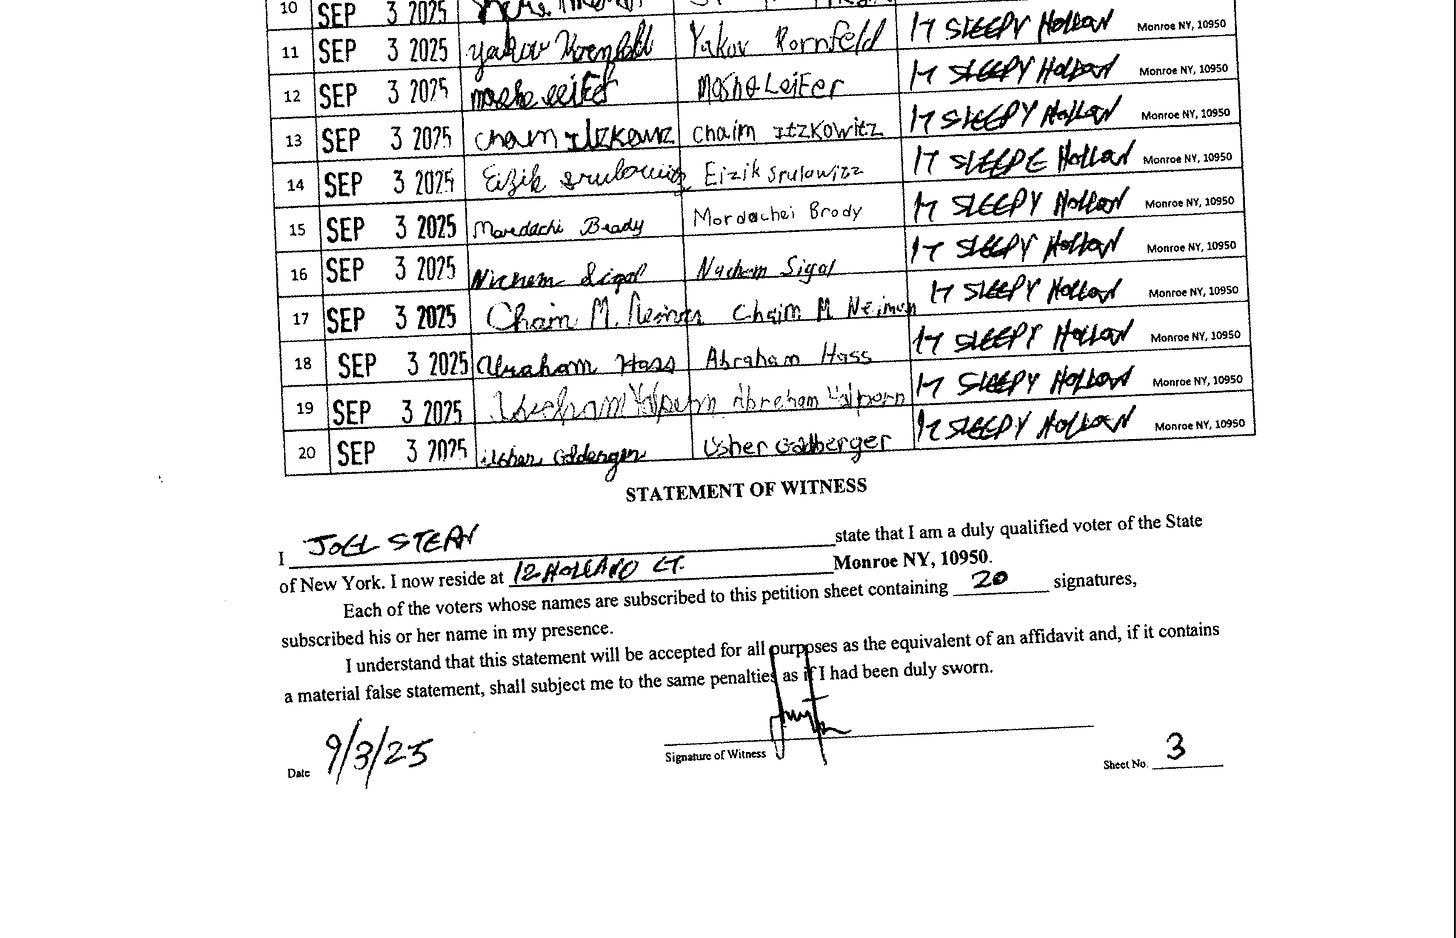 10 SEP 3 2025
11 SEP 3 2025 Yakov Kornfeld Yakov Kornfeld 17 SLEEPY Hollow Monroe NY, 10950
12 SEP 3 2025 moshe leifer Moshe Leifer 17 SLEEPY Hollow Monroe NY, 10950
13 SEP 3 2025 Chaim Itzkowitz Chaim Itzkowitz 17 SLEEPY Hollow Monroe NY, 10950
14 SEP 3 2025 Eizik Srulowitz Eizik Srulowizz 17 SLEEPE Hollow Monroe NY, 10950
15 SEP 3 2025 Mordachi Brody Mordachei Brody 17 SLEEPY Hollow Monroe NY, 10950
16 SEP 3 2025 Nuchem Sigal Nuchem Sigal 17 SLEEPY Hollow Monroe NY, 10950
17 SEP 3 2025 Chaim M. Neiman Chaim M Neiman 17 SLEEPY Hollow Monroe NY, 10950
18 SEP 3 2025 Abraham Hass Abraham Hass 17 SLEEPY Hollow Monroe NY, 10950
19 SEP 3 2025 Abraham Halpern Abraham Halporn 17 SLEEPY Hollow Monroe NY, 10950
20 SEP 3 2025 Usher Goldberger 17 SLEEPY Hollow Monroe NY, 10950
STATEMENT OF WITNESS
I JOEL STERN state that I am a duly qualified voter of the State
of New York. I now reside at 12 HOLLAND CT. Monroe NY, 10950.
Each of the voters whose names are subscribed to this petition sheet containing 20 signatures,
subscribed his or her name in my presence.
I understand that this statement will be accepted for all purposes as the equivalent of an affidavit and, if it contains
a material false statement, shall subject me to the same penalties as if I had been duly sworn.
Date 9/3/25 Signature of Witness Sheet No. 3